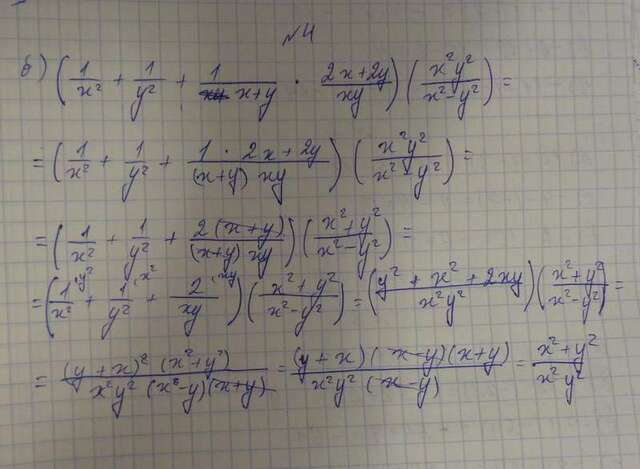 №4
б) (1/x² + 1/y² + 1/(x+y) · (2x+2y)/(xy)) (x²y²/(x²-y²)) =
= (1/x² + 1/y² + (1 · 2x+2y)/((x+y) xy)) (x²y²/(x²-y²)) =
= (1/x² + 1/y² + 2(x+y)/((x+y) xy)) ((x²+y²)/(x²-y²)) =
= (1^{\y²}/x² + 1^{\x²}/y² + 2^{\xy}/(xy)) ((x²+y²)/(x²-y²)) = ((y² + x² + 2xy)/(x²y²)) ((x²+y²)/(x²-y²)) =
= ((y+x)² (x²+y²))/(x²y² (x²-y)(x+y)) = ((y+x)(x-y)(x+y))/(x²y² (x-y)) = (x²+y²)/(x²y²)